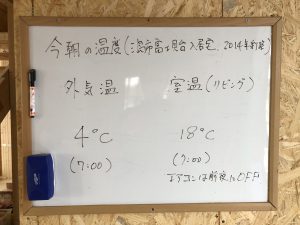 今朝の温度(富士見台 2014年新築)
外気温 室温(リビング)
4℃ 18℃
(7:00) (7:00)
エアコンは OFF